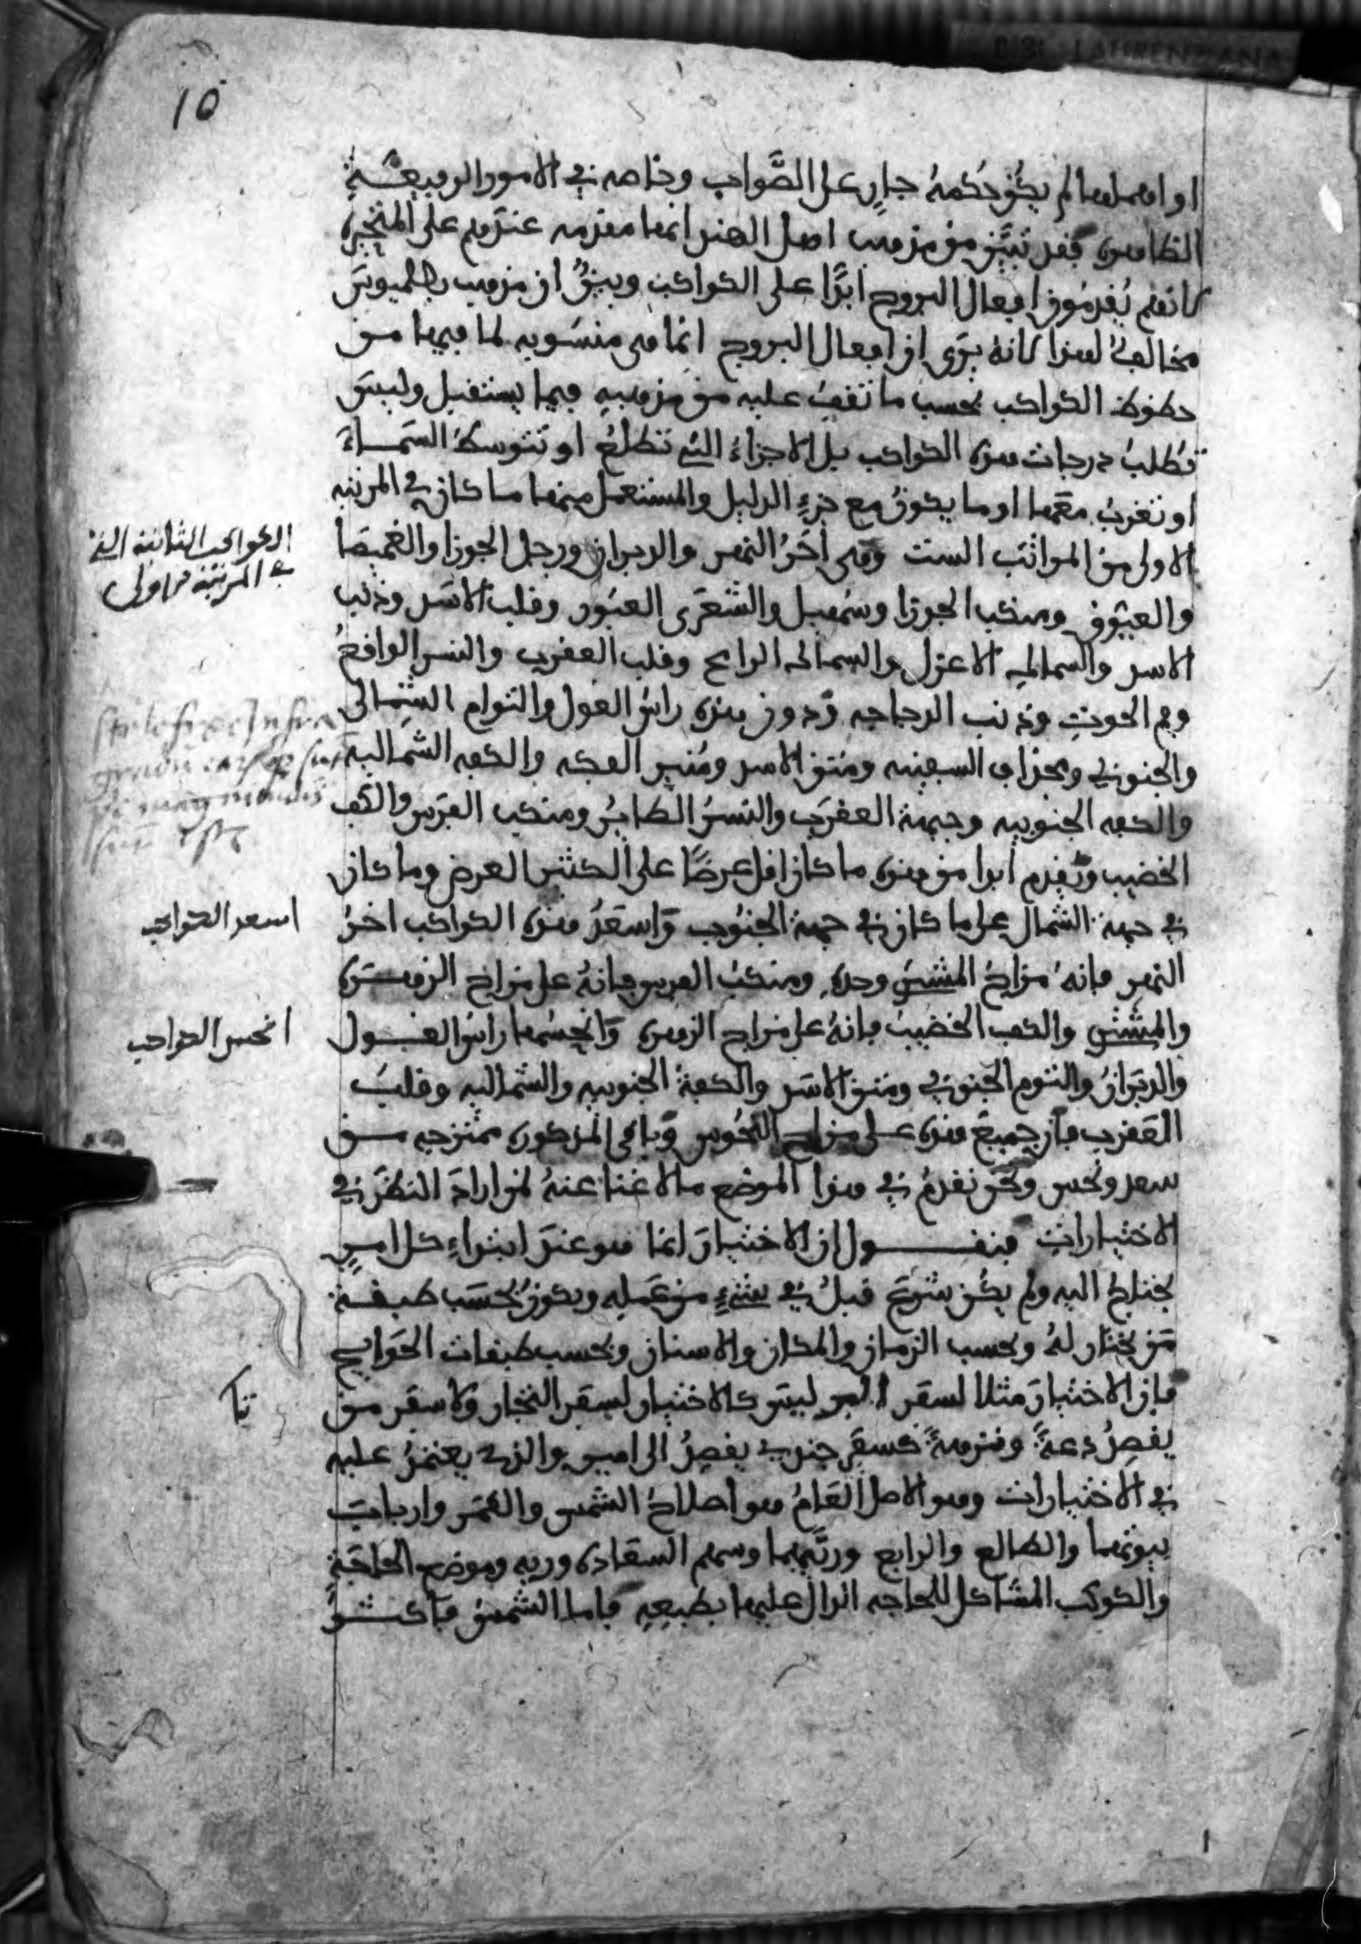 10
او اهملها لم يكن حكمه جار على الصَّواب وخاصه في الامور الرفيعة
الظاهره فقد تبيَّن من مذهب اهل الهند انها مقدمه عندهم على المتحيره
لانهم يُقدمُون افعال البروج ابدًا على الكواكب ويبينُ ان مذهب بطلميوس
مخالف لهذا لانه يرَى ان افعال البروج انما هى منسُوبه لما فيها من
حظوظ الكواكب بحسب ما تقف عليه من مذهبه فيما يستقبل وليس
تطلبُ درجات هذه الكواكب بل الاجزاءُ التي تطلعُ او تتوسطُ السَّماءَ
او تغربُ معَها او ما يكونُ مع جزءِ الدليل والمستعمل منها ما كان في المرتبه
الاولى من المراتب الست وهى اخَرُ النهر والدبران ورجل الجوزا والغميصَا
والعيّوق ومنكب الجوزا وسُهيل والشعرَى العبُور وقلب الاسَد وذنب
الاسد والسماك الاعزل والسماك الرامح وقلب العقرب والنسر الواقعُ
وفم الحوت وذنب الدجاجه ودون هذه راسُ الغول والتوام الشمالي
والجنوبي ومجذاف السفينه ومتن الاسد ومُنير الفكه والكفه الشماليه
والكفه الجنوبيه وجبهة العقرَب والنسرُ الطايرُ ومنكب الفرَس والكف
الخضيب ويُقدم ابدا من هذه ما كان اقل عرضًا على الكثير العرض وما كان
في جهة الشمال على ما كان في جهة الجنُوب واسعَدُ هذه الكواكب اخرُ
النهر فانهُ مزاجُ المشتري وحده ومنكبُ الفرس فانهُ على مزاج الزهرة
والمشتري والكف الخضيبُ فانهُ على مزاج الزهره وانحسُها راسُ الغول
والدبرَانُ والتوم الجنوبي ومتن الاسَد والكفة الجنوبيه والشماليه وقلبُ
العقرب فان جميعَ هذه على مزاج النحُوس وباقى المذكوره ممتزجه من
سعد ونحس ونحن نقدمُ في هذا الموضع ما لا غنا عنهُ لمن ارادَ النظرَ في
الاختيارات فنقول ان الاختيارَ انما هو عندَ ابتداءِ كل امرٍ
يحتاج اليه ولم يكن شرعَ قبلُ في شيءٍ من عَمله ويكونُ بحسَب طبقة
مَن يختار لهُ وبحسب الزمان والمكان والاسنان وبحسب طبقات الحَوايج
فان الاختيارَ مثلا لسفر البر ليسَ كالاختيار لسفر التجار ولا سفر من
يقصِدُ دعةً ونزهةً كسفَر جندي يقصِدُ الى امير والذي يعتمدُ عليه
في الاختيارات وهو الاصل العَامُ هو اصلاحُ الشمس والقمَر واربابُ
بيوتهما والطالع والرابع وربَّيهما وسهم السعَاده وربه وموضع الحاجَة
والكوكب المشاكل للحاجه الدال عليها بطبعه فاما الشمسُ فاكثرُ
الكواكب الثابتة التي
في المرتبة الاولى
اسعد الكواكب
انحس الكواكب